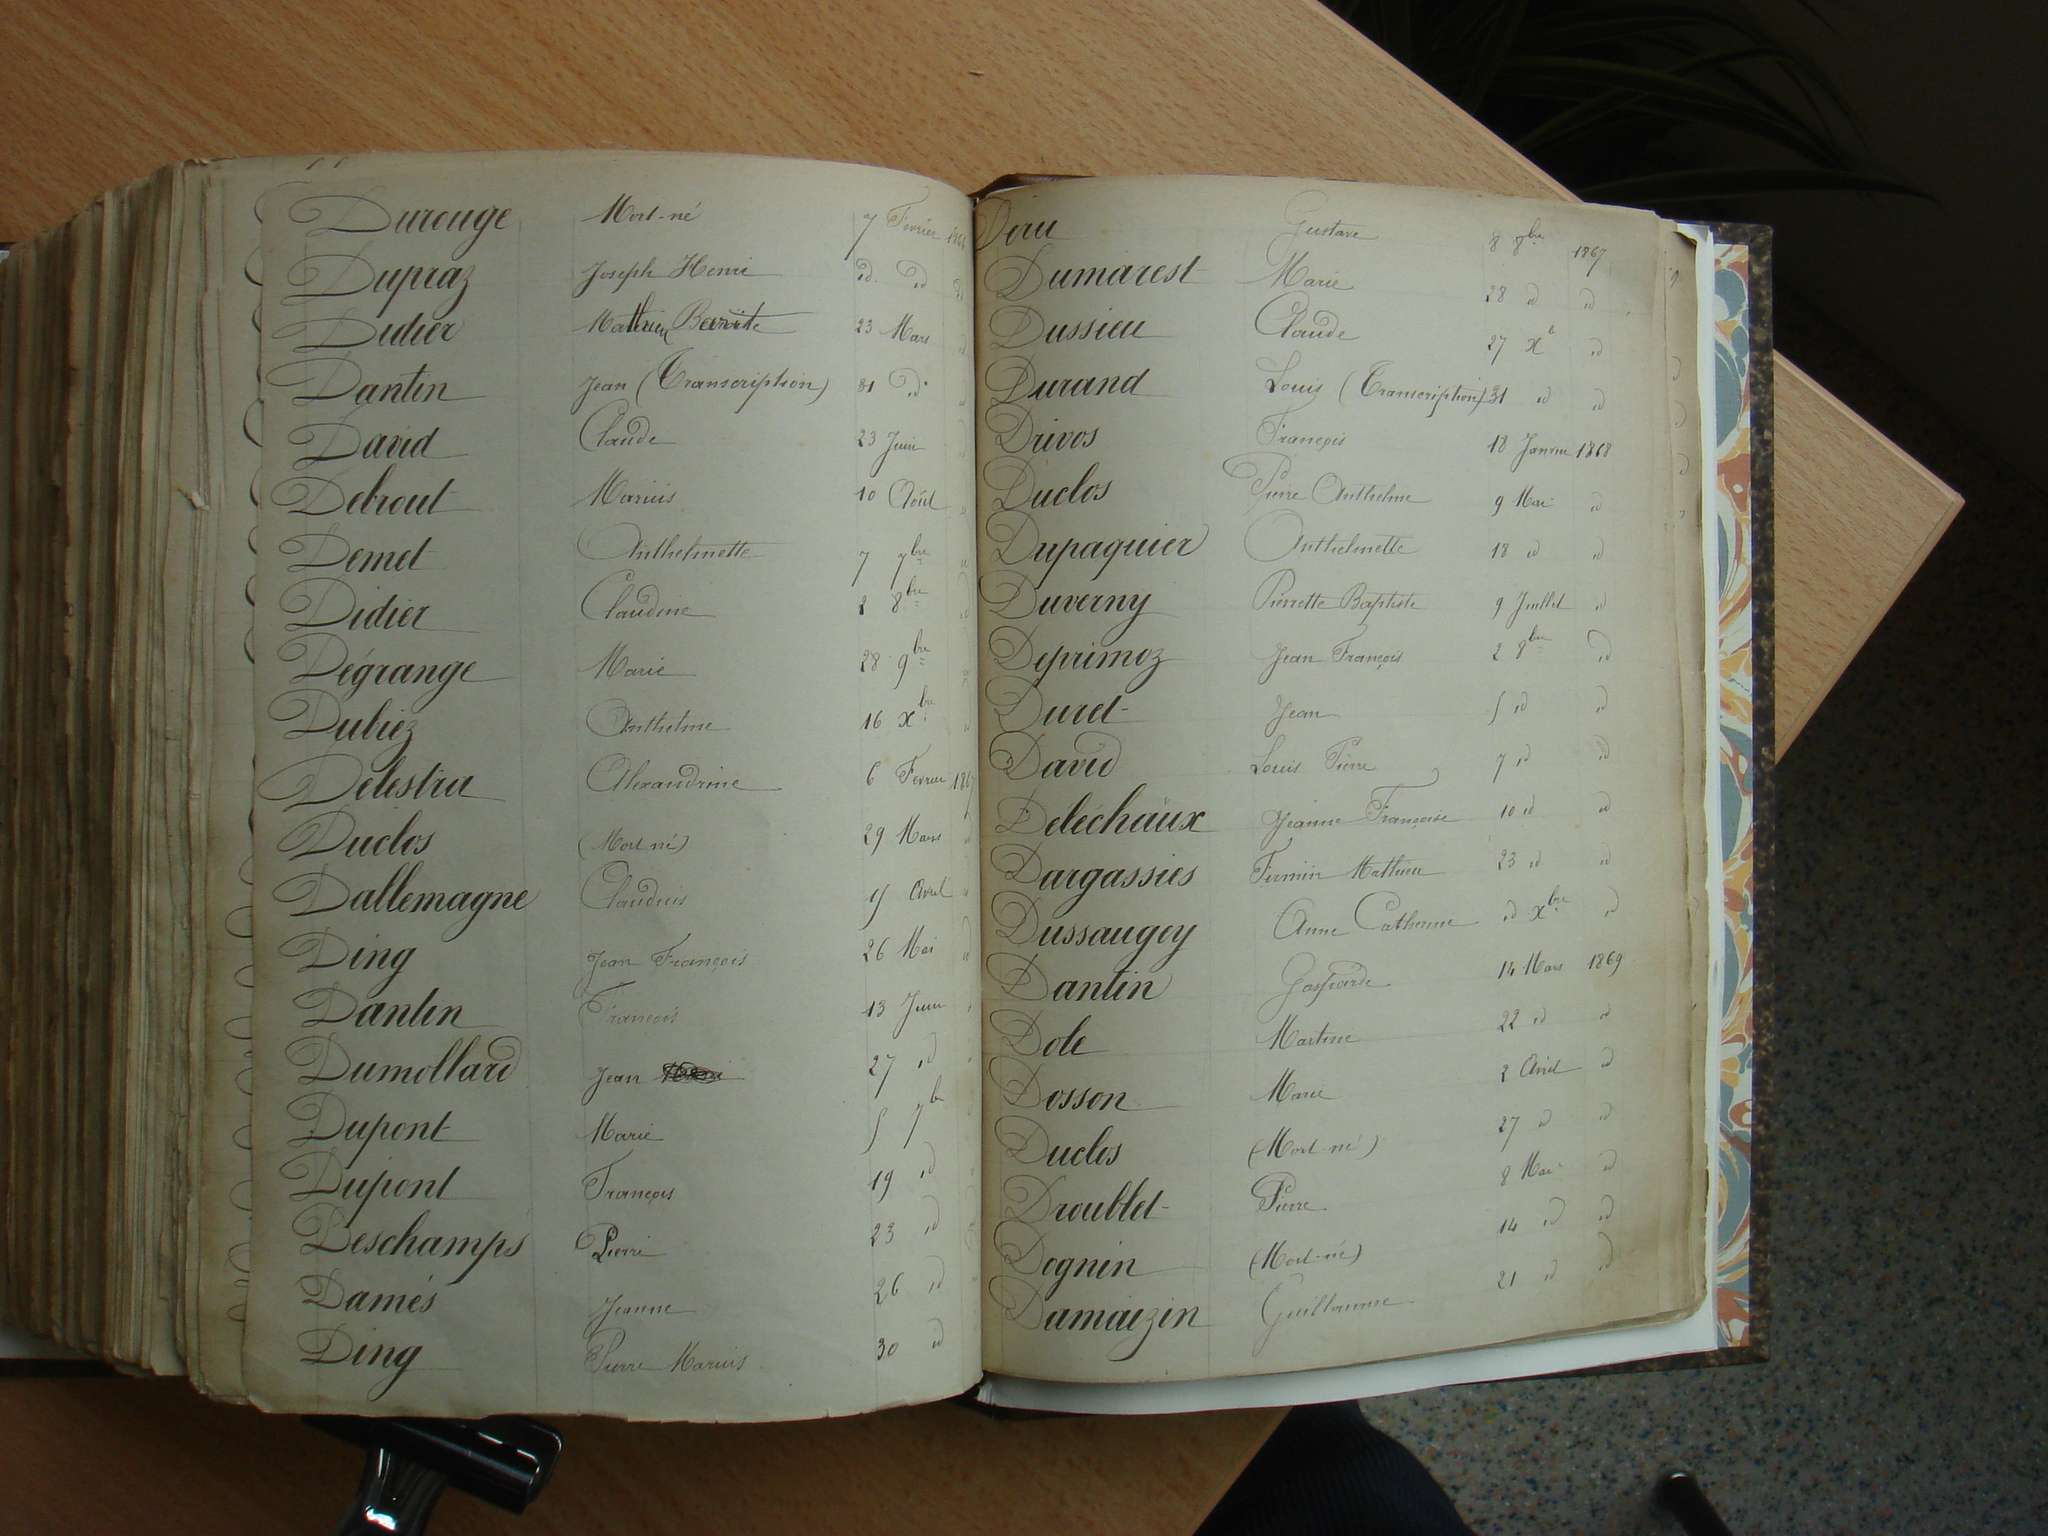 Durouge Mort-né 7 Février 1866
Dupraz Joseph Henri id. id id
Didier Mathieu 23 Mars id
Dantin Jean (Transcription) 31 id.
David Claude 23 Juin
Debrout Marius 10 Août
Demet Anthelmette 7 7bre
Didier Claudine 2 8bre
Dégrange Marie 28 9bre
Dubiez Anthelme 16 xbre
Delestra Alexandrine 6 Fevrier 1867
Duclos (Mort né) 29 Mars
Dallemagne Claudius Avril
Ding Jean François 26 Mai id
Dantin François 13 Juin
Dumollard Jean 27 id
Dupont Marie 5 7bre
Dupont François 19 id
Deschamps Pierre 23 id
Damés Jeanne 26 id
Ding Pierre Marius 30 id
Gustave 8 8bre 1867
Dumarest Marie 28 id id
Dussieu Claude 27 xe id
Durand Louis (Transcription) 31 id id
Drivos François 18 Janvier 1868
Duclos Pierre Anthelme 9 Mai id
Dupaquier Anthelmette 18 id id
Duverny Pierrette Baptiste 9 Juillet id
Deprimoz Jean François 2 8bre id
Duret Jean 5 id id
David Louis Pierre 7 id id
Deléchaux Jeanne Françoise 10 id id
Dargassies Firmin Mathieu 23 id id
Dussaugey Anne Catherine id xbre id
Dantin Gasparde 14 Mars 1869
Dole Martine 22 id id
Dosson Marie 2 Avril id
Duclos (Mort-né) 27 id id
Droublet Pierre 8 Mai id
Dognin (Mort-né) 14 id id
Damaizin Guillaume 21 id id